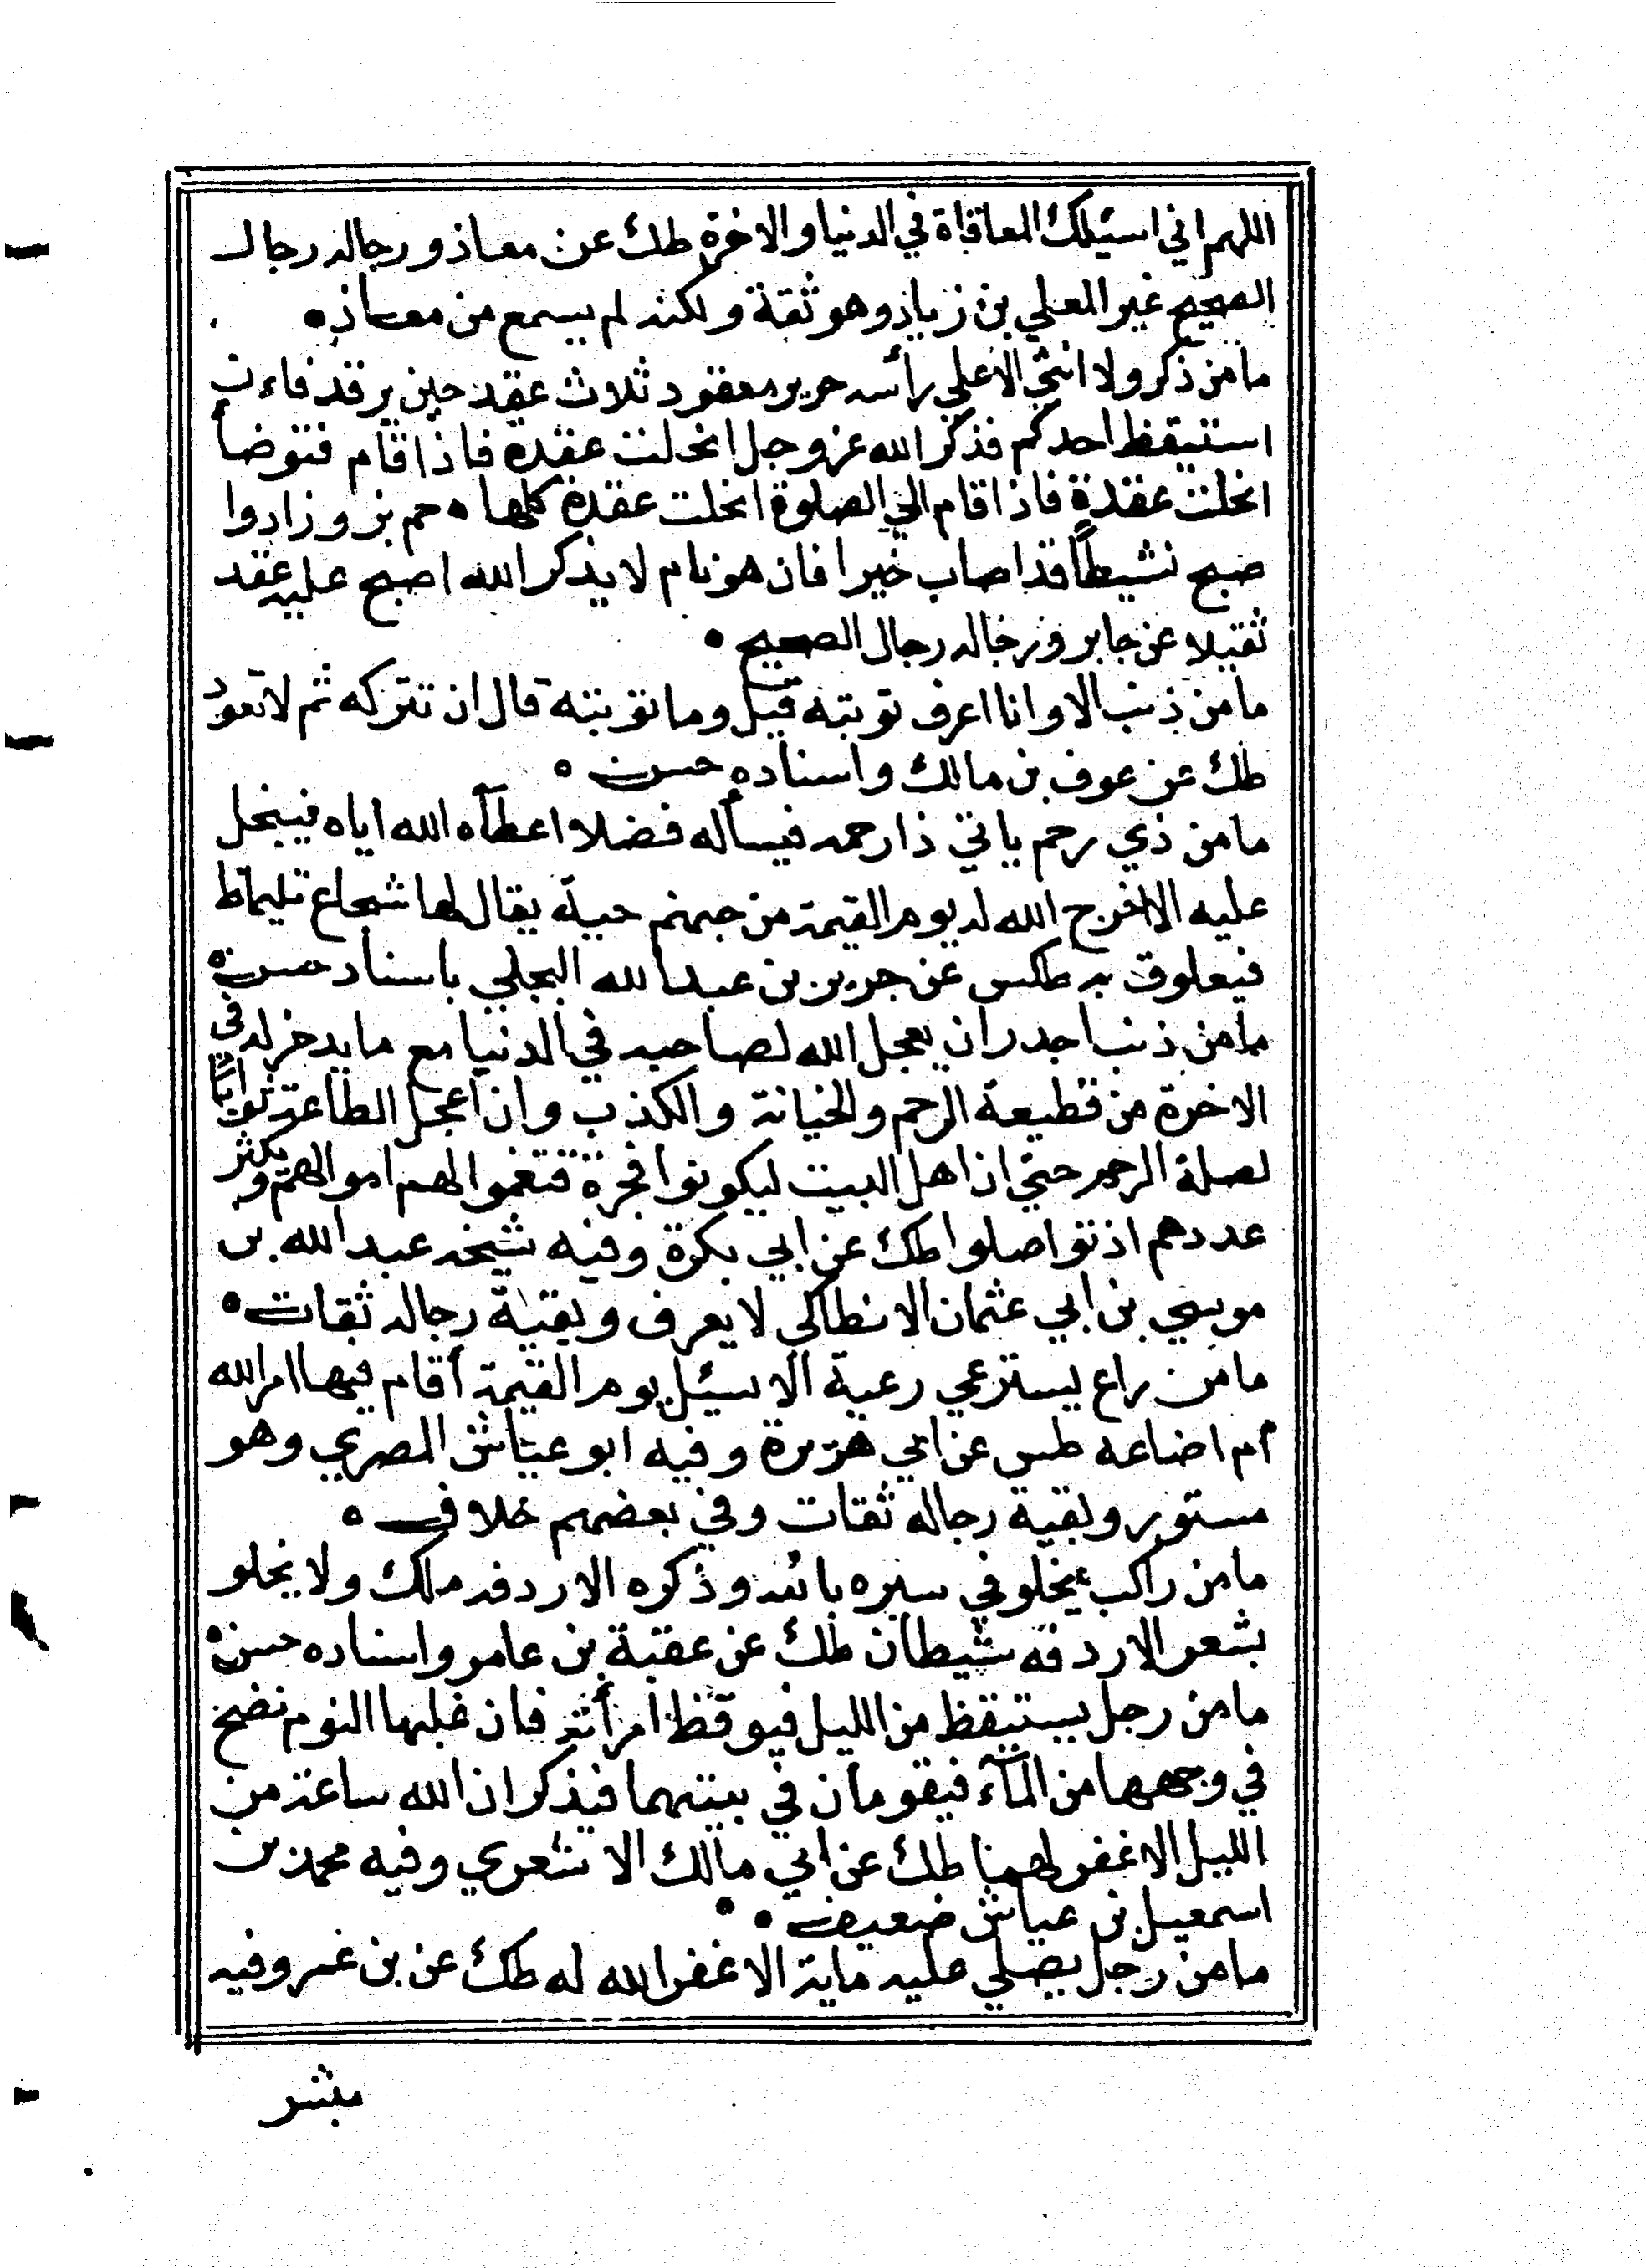 اللهم اني اسئلك المعافاة في الدنيا والاخرة طك عن معاذ ورجاله رجال
الصحيح غير المعلي بن زياد وهو ثقة ولكنه لم يسمع من معاذ
ما من ذكر ولا انثي الا علي رأسه جرير معقود ثلاث عقد حين يرقد فاءن
استيقظ احدكم فذكر الله عز وجل انحلت عقدة فاذا قام فتوضأ
انحلت عقدة فاذا قام الي الصلوة انحلت عقدة كلها حم بز وزادوا
صبح نشيطًا قد اصاب خيرا فان هو نام لا يذكر الله اصبح عليه عقد
ثقيلا عن جابر ورجاله رجال الصحيح
ما من ذنب الا وانا اعرف توبته قيل وما توبته قال ان تتركه ثم لا تعود
طك عن عوف بن مالك واسناده حسن
ما من ذي رحم ياتي ذا رحمه فيسأله فضلا اعطآه الله اياه فيبخل
عليه الا اخرج الله له يوم القيمة من جهنم حية يقال لها شجاع تليماظ
فيعلوق به طكس عن جرير بن عبد الله البجلي باسناد حسن
ما من ذنب اجدر ان يعجل الله لصاحبه في الدنيا مع ما يدخر له في
الاخرة من قطيعة الرحم والخيانة والكذب وان اعجل الطاعة ثوابًا
لصلة الرحم حتي ان اهل البيت ليكونوا فجرة فتنموا لهم اموالهم ويكثر
عددهم اذ تواصلوا طك عن ابي بكرة وفيه شيخه عبد الله بن
موسي بن ابي عثمان الانطاكي لا يعرف وبقية رجاله ثقات
ما من راع يسترعي رعية الا سئل يوم القيمة أقام فيها امر الله
أم اضاعه طس عن ابي هريرة وفيه ابو عياش المصري وهو
مستور وبقية رجاله ثقات وفي بعضهم خلاف
ما من راكب يخلو في سيره بالله وذكره الا ردفه ملك ولا يخلو
بشعر الا ردفه شيطان طك عن عقبة بن عامر واسناده حسن
ما من رجل يستيقظ من الليل فيوقظ امرأته فان غلبها النوم نضح
في وجهها من المآء فيقومان في بيتهما فيذكران الله ساعة من
الليل الا غفر لهما طك عن ابي مالك الاشعري وفيه محمد بن
اسمعيل بن عياش ضعيف
ما من رجل يصلي عليه ماية الا غفر الله له طك عن بن عمر وفيه
مبشر